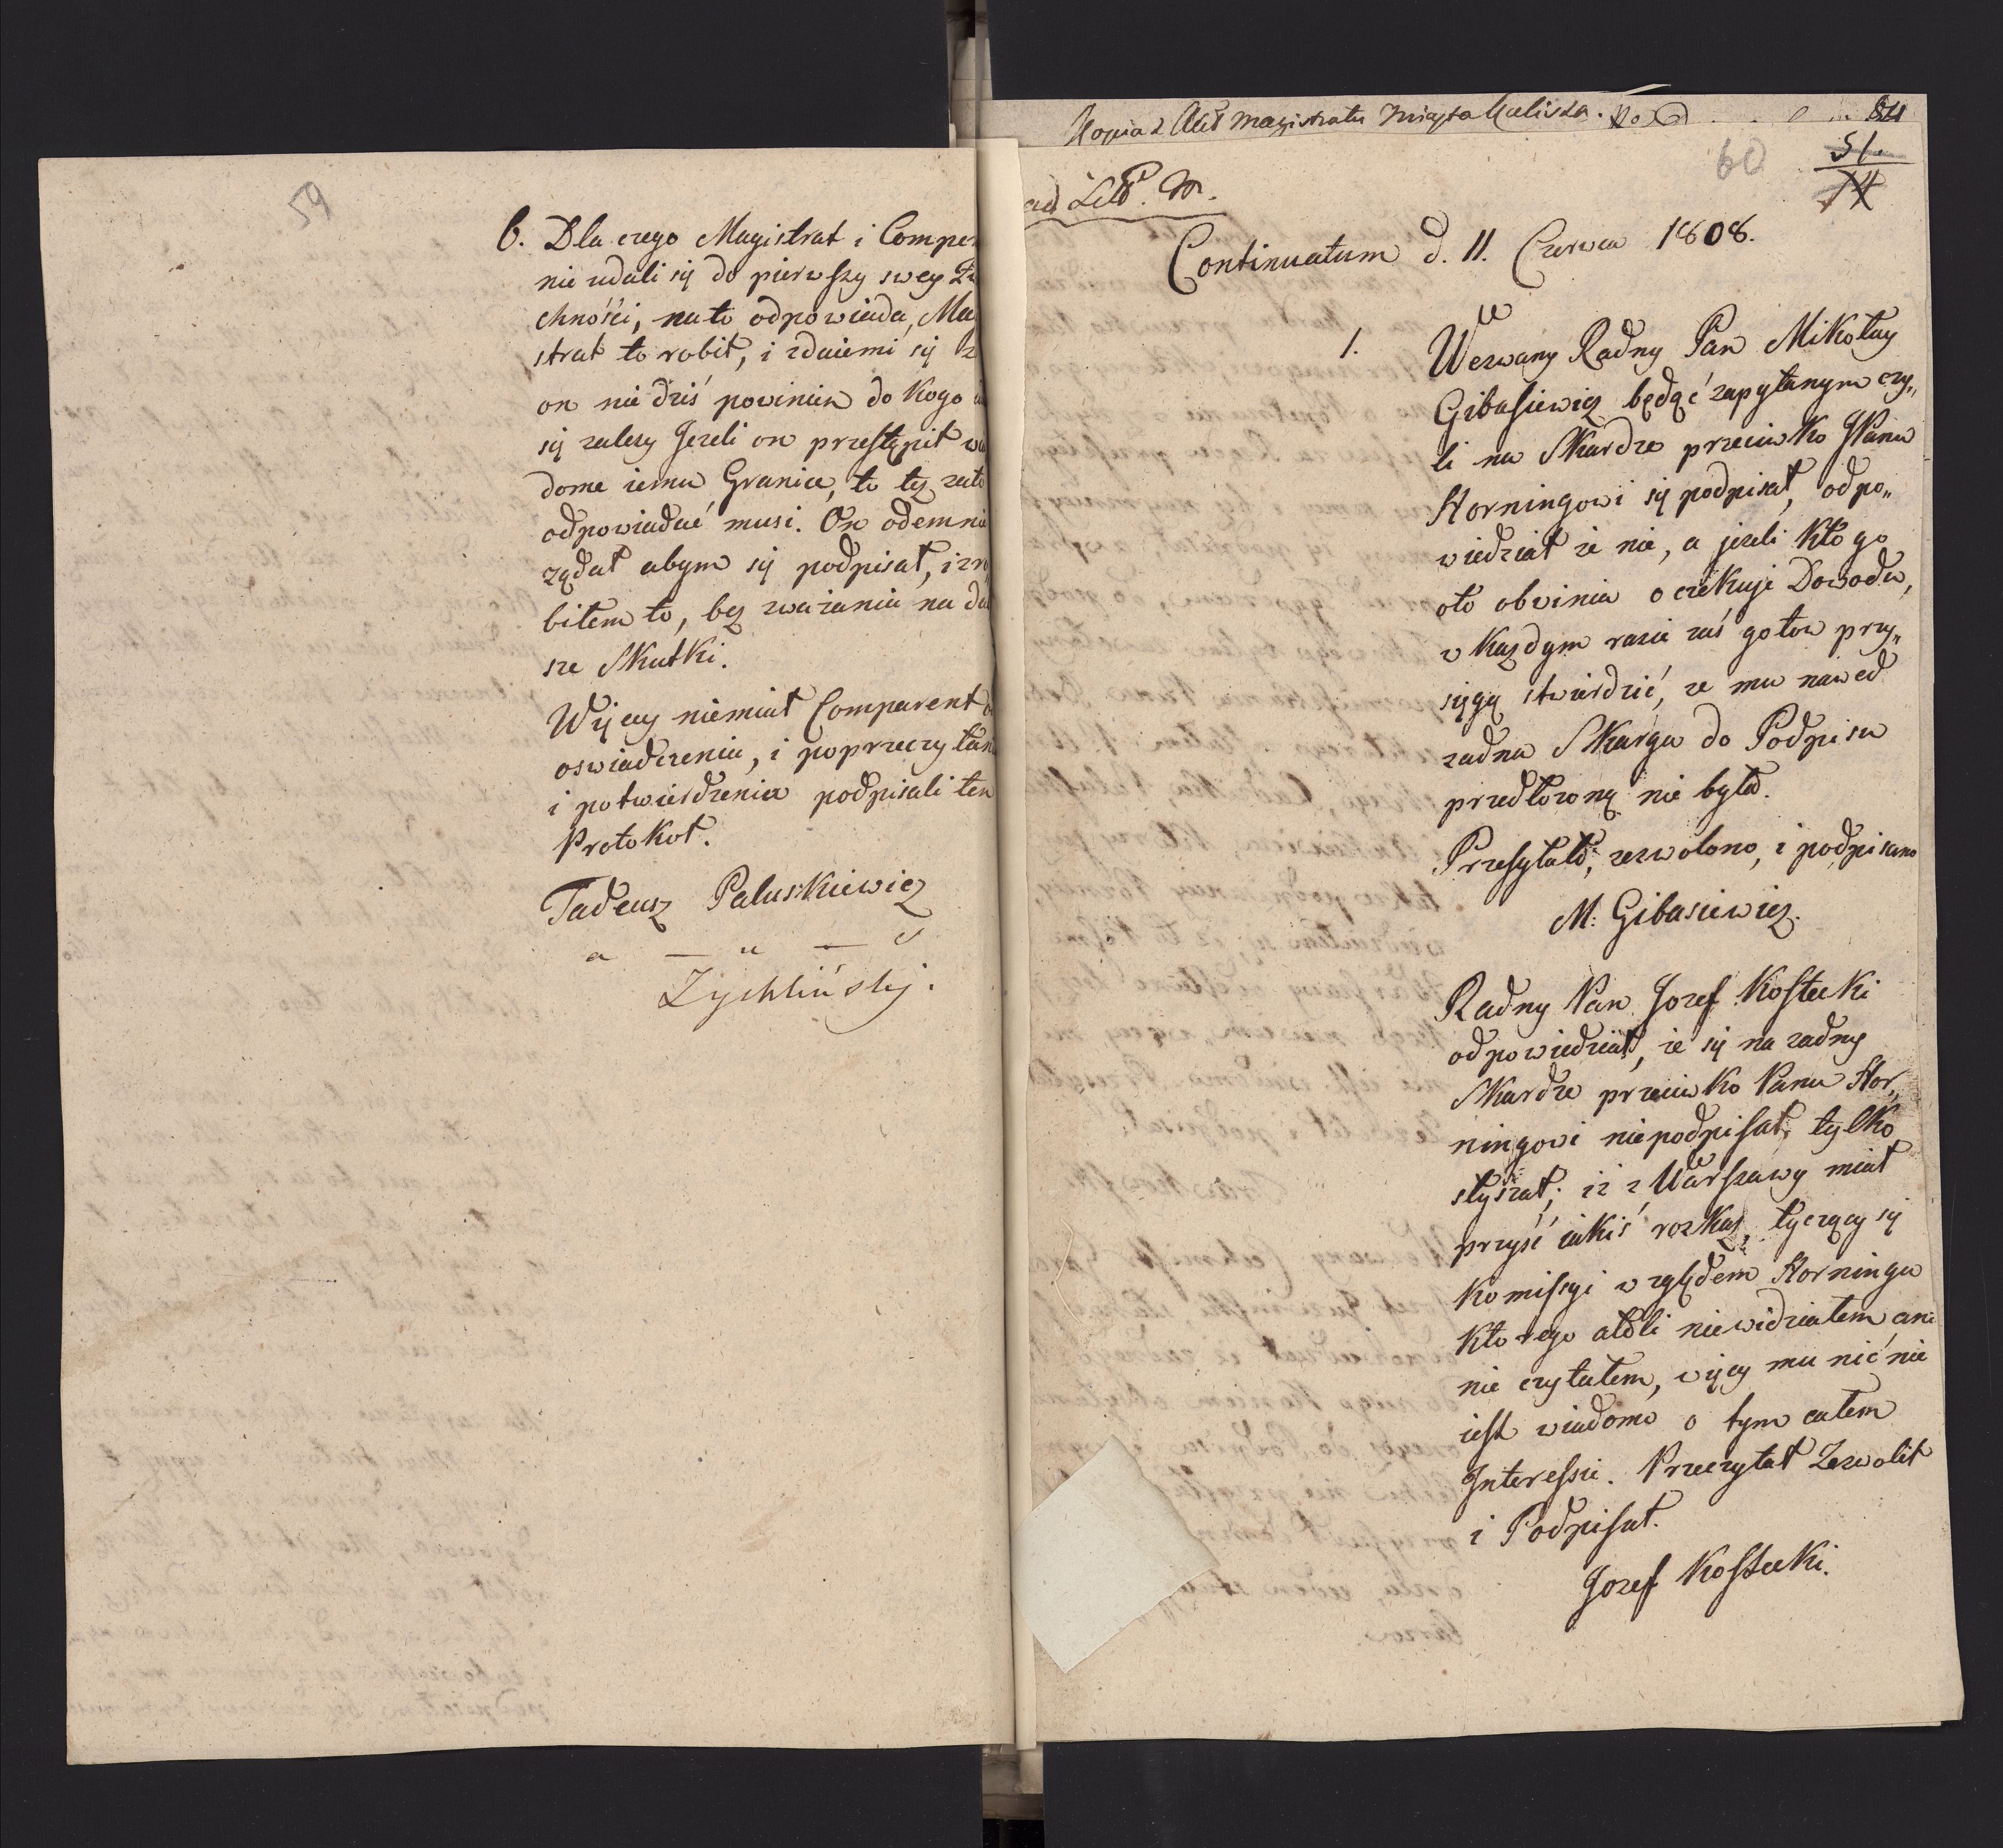 59
6. Dla czego Magistrat i Compe
nie udali się do pierwszy swey Zw
chności, na to odpowiada, Ma
strat to robił, i zdaiemi się
on nie dziś powinien do kogo
się zalezy Jezeli on przestąpił w
dome iemu Granice, to tez zato
odpowiadać musi. On odemnie
ządał abym się podpisał, i zro
biłem to, bez zwazania na da
sze Skutki.
Więcey niemiał Comparent
oswiadczenia, i poprzeczytan
i potwierdzenia podpisali ten
Protokoł.
Tadeusz Paluskiewicz
a — u — s
Zychlińsky.
Kopia z Akt Magistratu Miasta Kalisza. 84
60
51.
14
ad Litt. M.
Continuatum d. 11. Czerwca 1808.
1. Wezwany Radny Pan Mikołay
Gibasiewicz będąć zapytanym czy„
li na Skardze przeciwko JPanu
Horningowi się podpisał, odpo„
wiedział ze nie, a jezeli kto go
oto obwinia oczekuje Dowodu,
w kazdym razie zaś gotow przy„
sięgą stwierdzić, ze mu nawed
zadna Skarga do Podpisu
przedłozoną nie była.
Przesytałt, zezwolono, i podpisano
M: Gibasiewicz.
Radny Pan Jozef Kostecki
odpowiedział, ze się na zadny
Skardze przeciwko Panu Hor„
ningowi niepodpisał, tylko
słyszał; iz z Warszawy miał
przyść iakiś rozkaz, tyczący się
Komissyi względem Horninga
ktorego atoli niewidziałem ani
nie czytałem, więcy mu nić nie
iest wiadomo o tym całem
Interessie. Przeczytał Zezwolił
i Podpisał.
Jozef Kostecki.